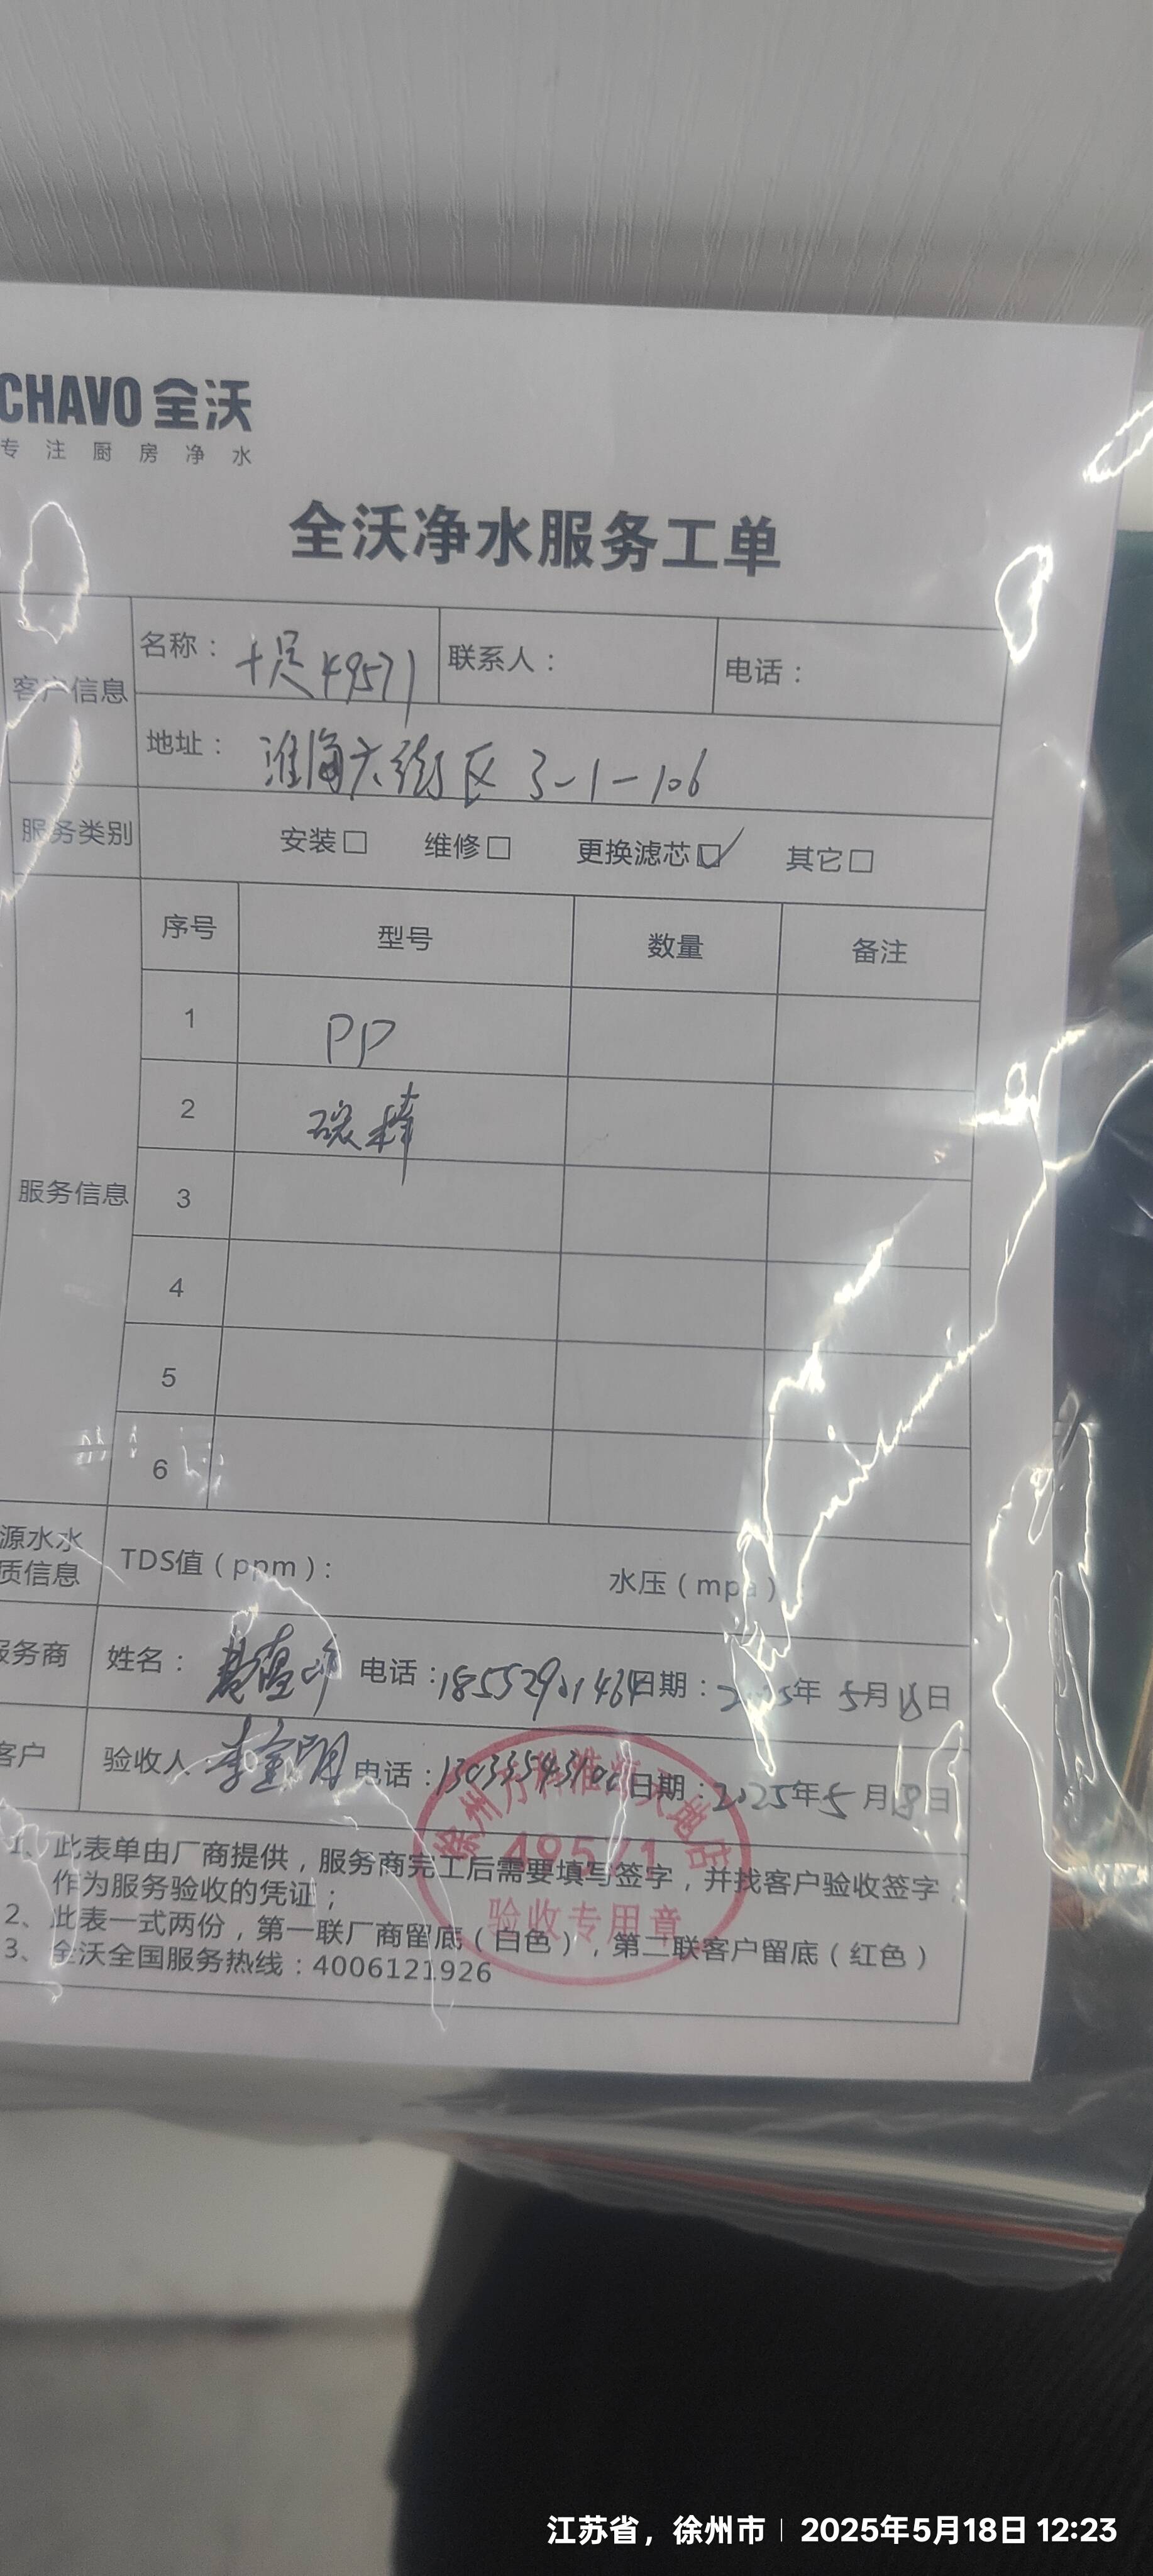 CHAVO 全沃
专注厨房净水
全沃净水服务工单
客户信息 名称：十足49571 联系人： 电话：
地址：淮海大街区 3-1-106
服务类别 安装□ 维修□ 更换滤芯☑ 其它□
服务信息 序号 型号 数量 备注
1 PP
2 碳棒
3
4
5
6
源水水质信息 TDS值（ppm）： 水压（mpa）
服务商 姓名： 电话： 日期：2025年5月18日
客户 验收人： 电话： 日期：2025年5月18日
49571
验收专用章
1、此表单由厂商提供，服务商完工后需要填写签字，并找客户验收签字，
作为服务验收的凭证；
2、此表一式两份，第一联厂商留底（白色），第二联客户留底（红色）
3、全沃全国服务热线：4006121926
江苏省，徐州市 | 2025年5月18日 12:23